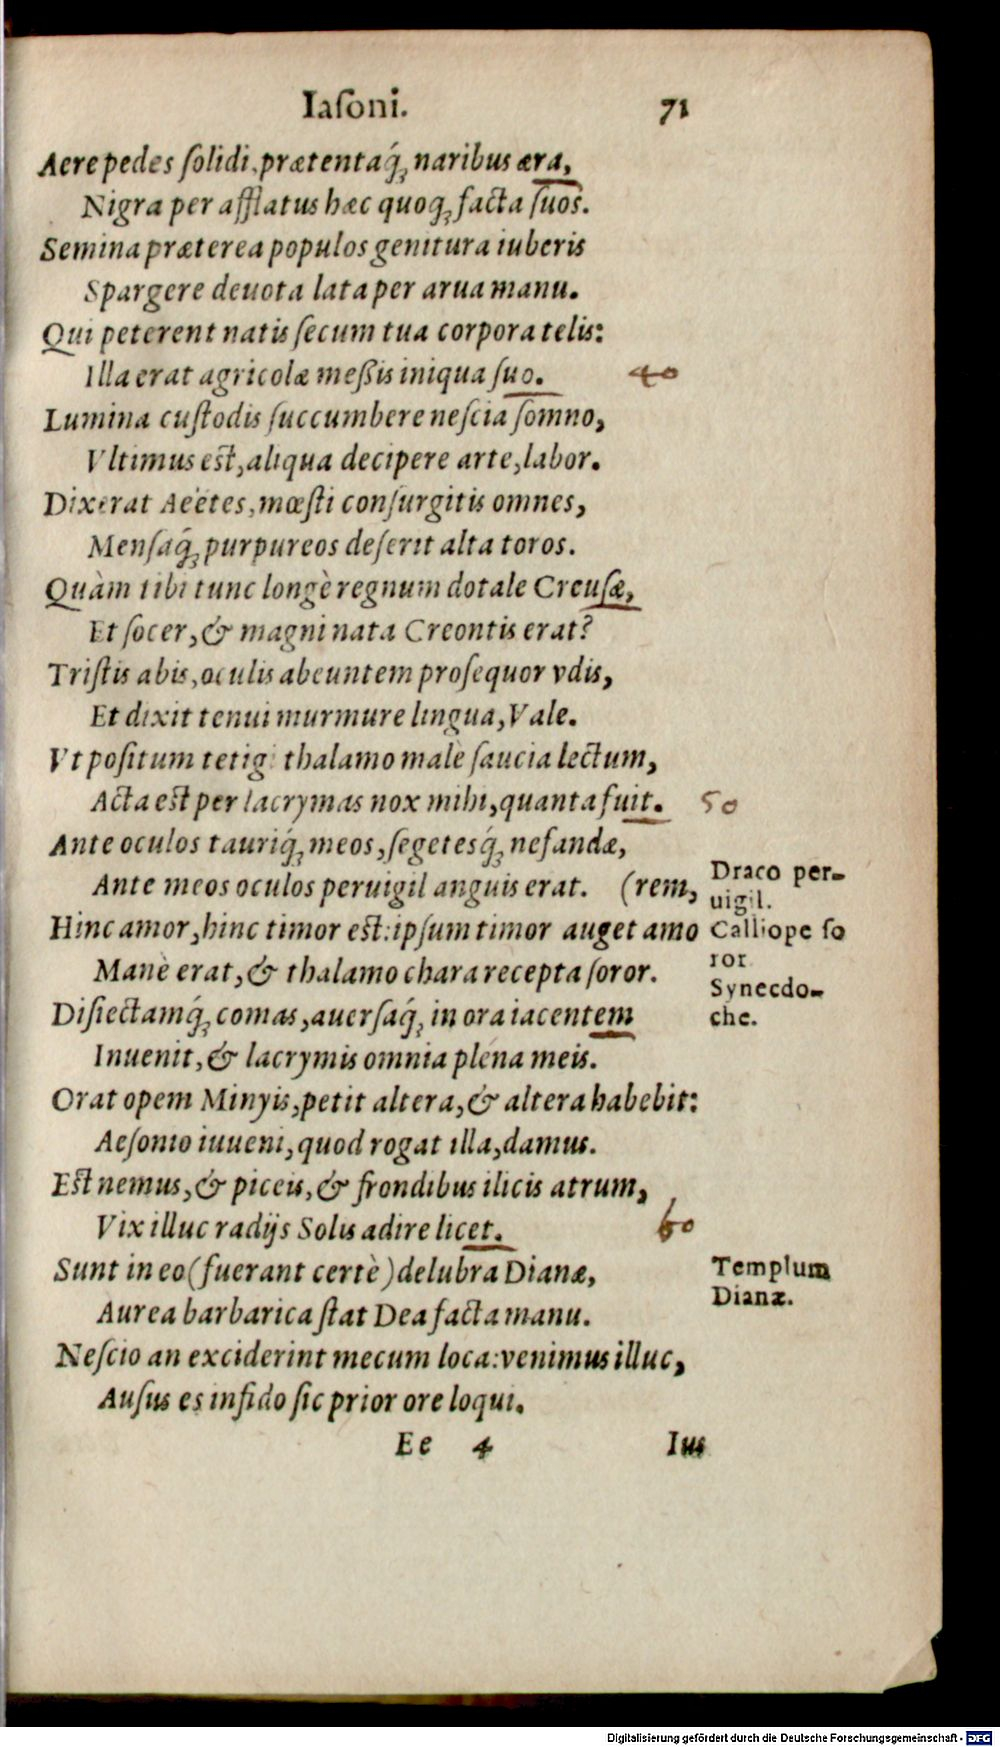 Iasoni. 71
Aere pedes solidi, prætentaq́; naribus æra,
Nigra per afflatus hæc quoq; facta suos.
Semina præterea populos genitura iuberis
Spargere deuota lata per arua manu.
Qui peterent natis secum tua corpora telis:
Illa erat agricolæ meßis iniqua suo. 40
Lumina custodis succumbere nescia somno,
Vltimus est, aliqua decipere arte, labor.
Dixerat Aeëtes, mœsti consurgitis omnes,
Mensaq́; purpureos deserit alta toros.
Quàm tibi tunc longè regnum dotale Creusæ,
Et socer, & magni nata Creontis erat?
Tristis abis, oculis abeuntem prosequor vdis,
Et dixit tenui murmure lingua, Vale.
Vt positum tetigi thalamo malè saucia lectum,
Acta est per lacrymas nox mihi, quanta fuit. 50
Ante oculos tauriq́; meos, segetesq́; nefandæ,
Ante meos oculos peruigil anguis erat. (rem,
Hinc amor, hinc timor est: ipsum timor auget amo
Manè erat, & thalamo chara recepta soror.
Disiectamq́; comas, auersaq́; in ora iacentem
Inuenit, & lacrymis omnia plena meis.
Orat opem Minyis, petit altera, & altera habebit:
Aesonio iuueni, quod rogat illa, damus.
Est nemus, & piceis, & frondibus ilicis atrum,
Vix illuc radijs Solis adire licet. 60
Sunt in eo (fuerant certè) delubra Dianæ,
Aurea barbarica stat Dea facta manu.
Nescio an exciderint mecum loca: venimus illuc,
Ausus es infido sic prior ore loqui.
Ee 4 Ius
Draco per-
uigil.
Calliope so
ror
Synecdo-
che.
Templum
Dianæ.
Digitalisierung gefördert durch die Deutsche Forschungsgemeinschaft - DFG